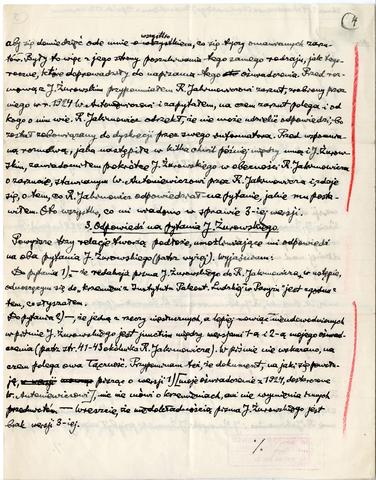 4
wszystko
aby się dowiedzieć ode mnie o wszystkiem, co się tyczy omawianych zarzu-
tów. Były to więc z jego strony poszukiwania tego samego rodzaju, jak
które doprowadziły do napisania tego oświadczenia. Przed roz-
mową z J. Żurowskim przypomniałem R. Jakimowiczowi zarzut, zrobiony prze
niego w r. 1924 W. Antoniewiczowi i zapytałem, na czem zarzut polega i od
kogo o nim wie. R. Jakimowicz odrzekł, że nie może udzielić odpowiedzi, bo
został zobowiązany do dyskrecji przez swego informatora. Przed wspomnia-
ną rozmową, jaka nastąpiła w kilka chwil później między mną i J. Żurow-
skim, zawiadomiłem pośrednio J. Żurowskiego w obecności R. Jakimowicza
o zarzucie, stawianym W. Antoniewiczowi przez R. Jakimowicza i, zdaje
się, o tem, co R. Jakimowicz odpowiedział na pytanie, jakie mu posta-
wiłem. Oto wszystko, co mi wiadomo w sprawie 3-iej wersji.
3. Odpowiedzi na pytania J. Żurowskiego.
Powyższe trzy relacje tworzą podłoże, umożliwiające mi odpowiedzi
na oba pytania J. Żurowskiego (patrz wyżej). Wyjaśniam:
Do pytania 1) — że redakcja pisma J. Żurowskiego do R. Jakimowicza, w ustępie,
odnoszącym się do krzemieni z Instytutu Paleont. Ludzkiej w Paryżu jest zgodna z
tem, co słyszałem
Do pytania 2) — że jedną z rzeczy niesłusznych, a lepiej mówiąc nieudowodnionych
w piśmie J. Żurowskiego jest junctim między wersjami 1-ą i 2-ą mojego oświad-
czenia (patrz str. 41-43 okólnika R. Jakimowicza). W piśmie nie wskazano, na
czem polega owa łączność. Przypominam też, że dokument, na jaki się powo-
łuję, pisząc o wersji 1) [moje oświadczenie z r. 1924, dostarczone
W. Antoniewiczowi], nic nie mówi o krzemieniach, ani nie wymienia innych
przedmiotów — wreszcie, że niedokładnością pisma J. Żurowskiego jest
brak wersji 3-iej.